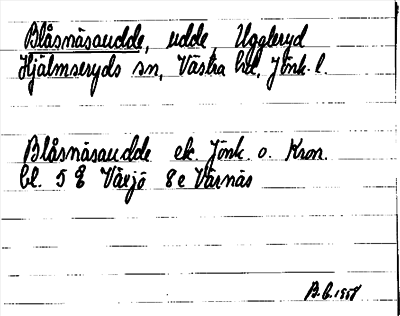 Blåsnäsaudde, udde, Uggleryd
Hjälmseryds sn, Västra hd, Jönk. l.
Blåsnäsaudde ek. Jönk o. Kron.
bl. 5 E Vävjö 8 e Värnäs
B.G. 1958